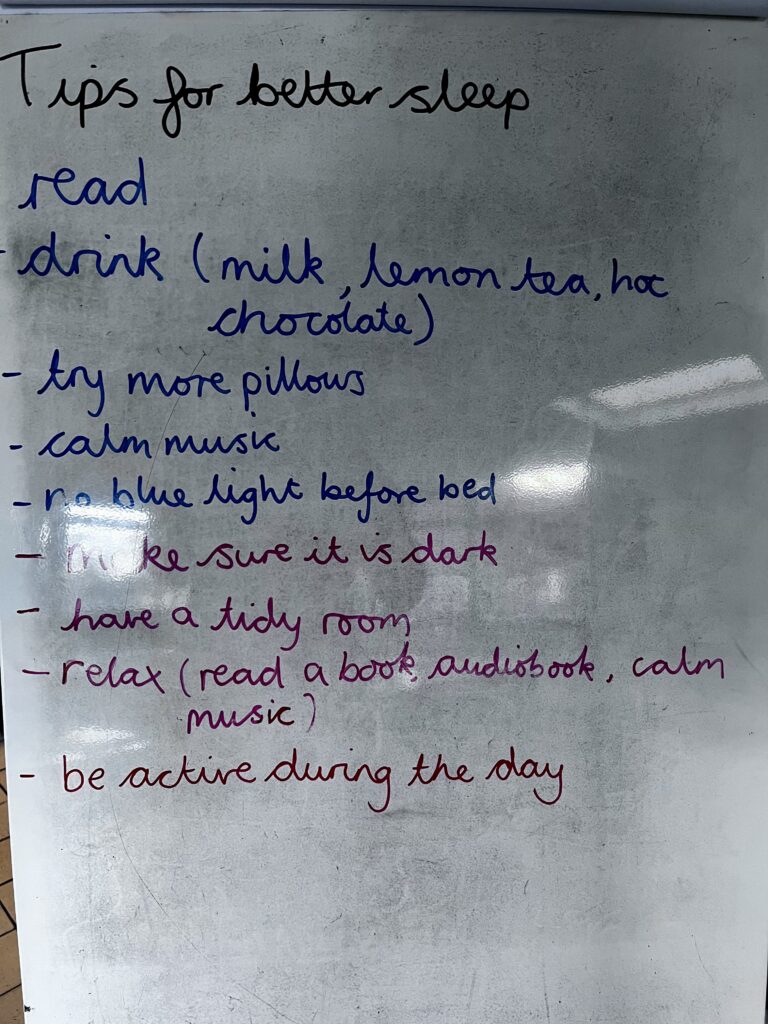 Tips for better sleep
read
- drink (milk, lemon tea, hot
chocolate)
- try more pillows
- calm music
- no blue light before bed
- make sure it is dark
- have a tidy room
- relax (read a book, audiobook, calm
music)
- be active during the day